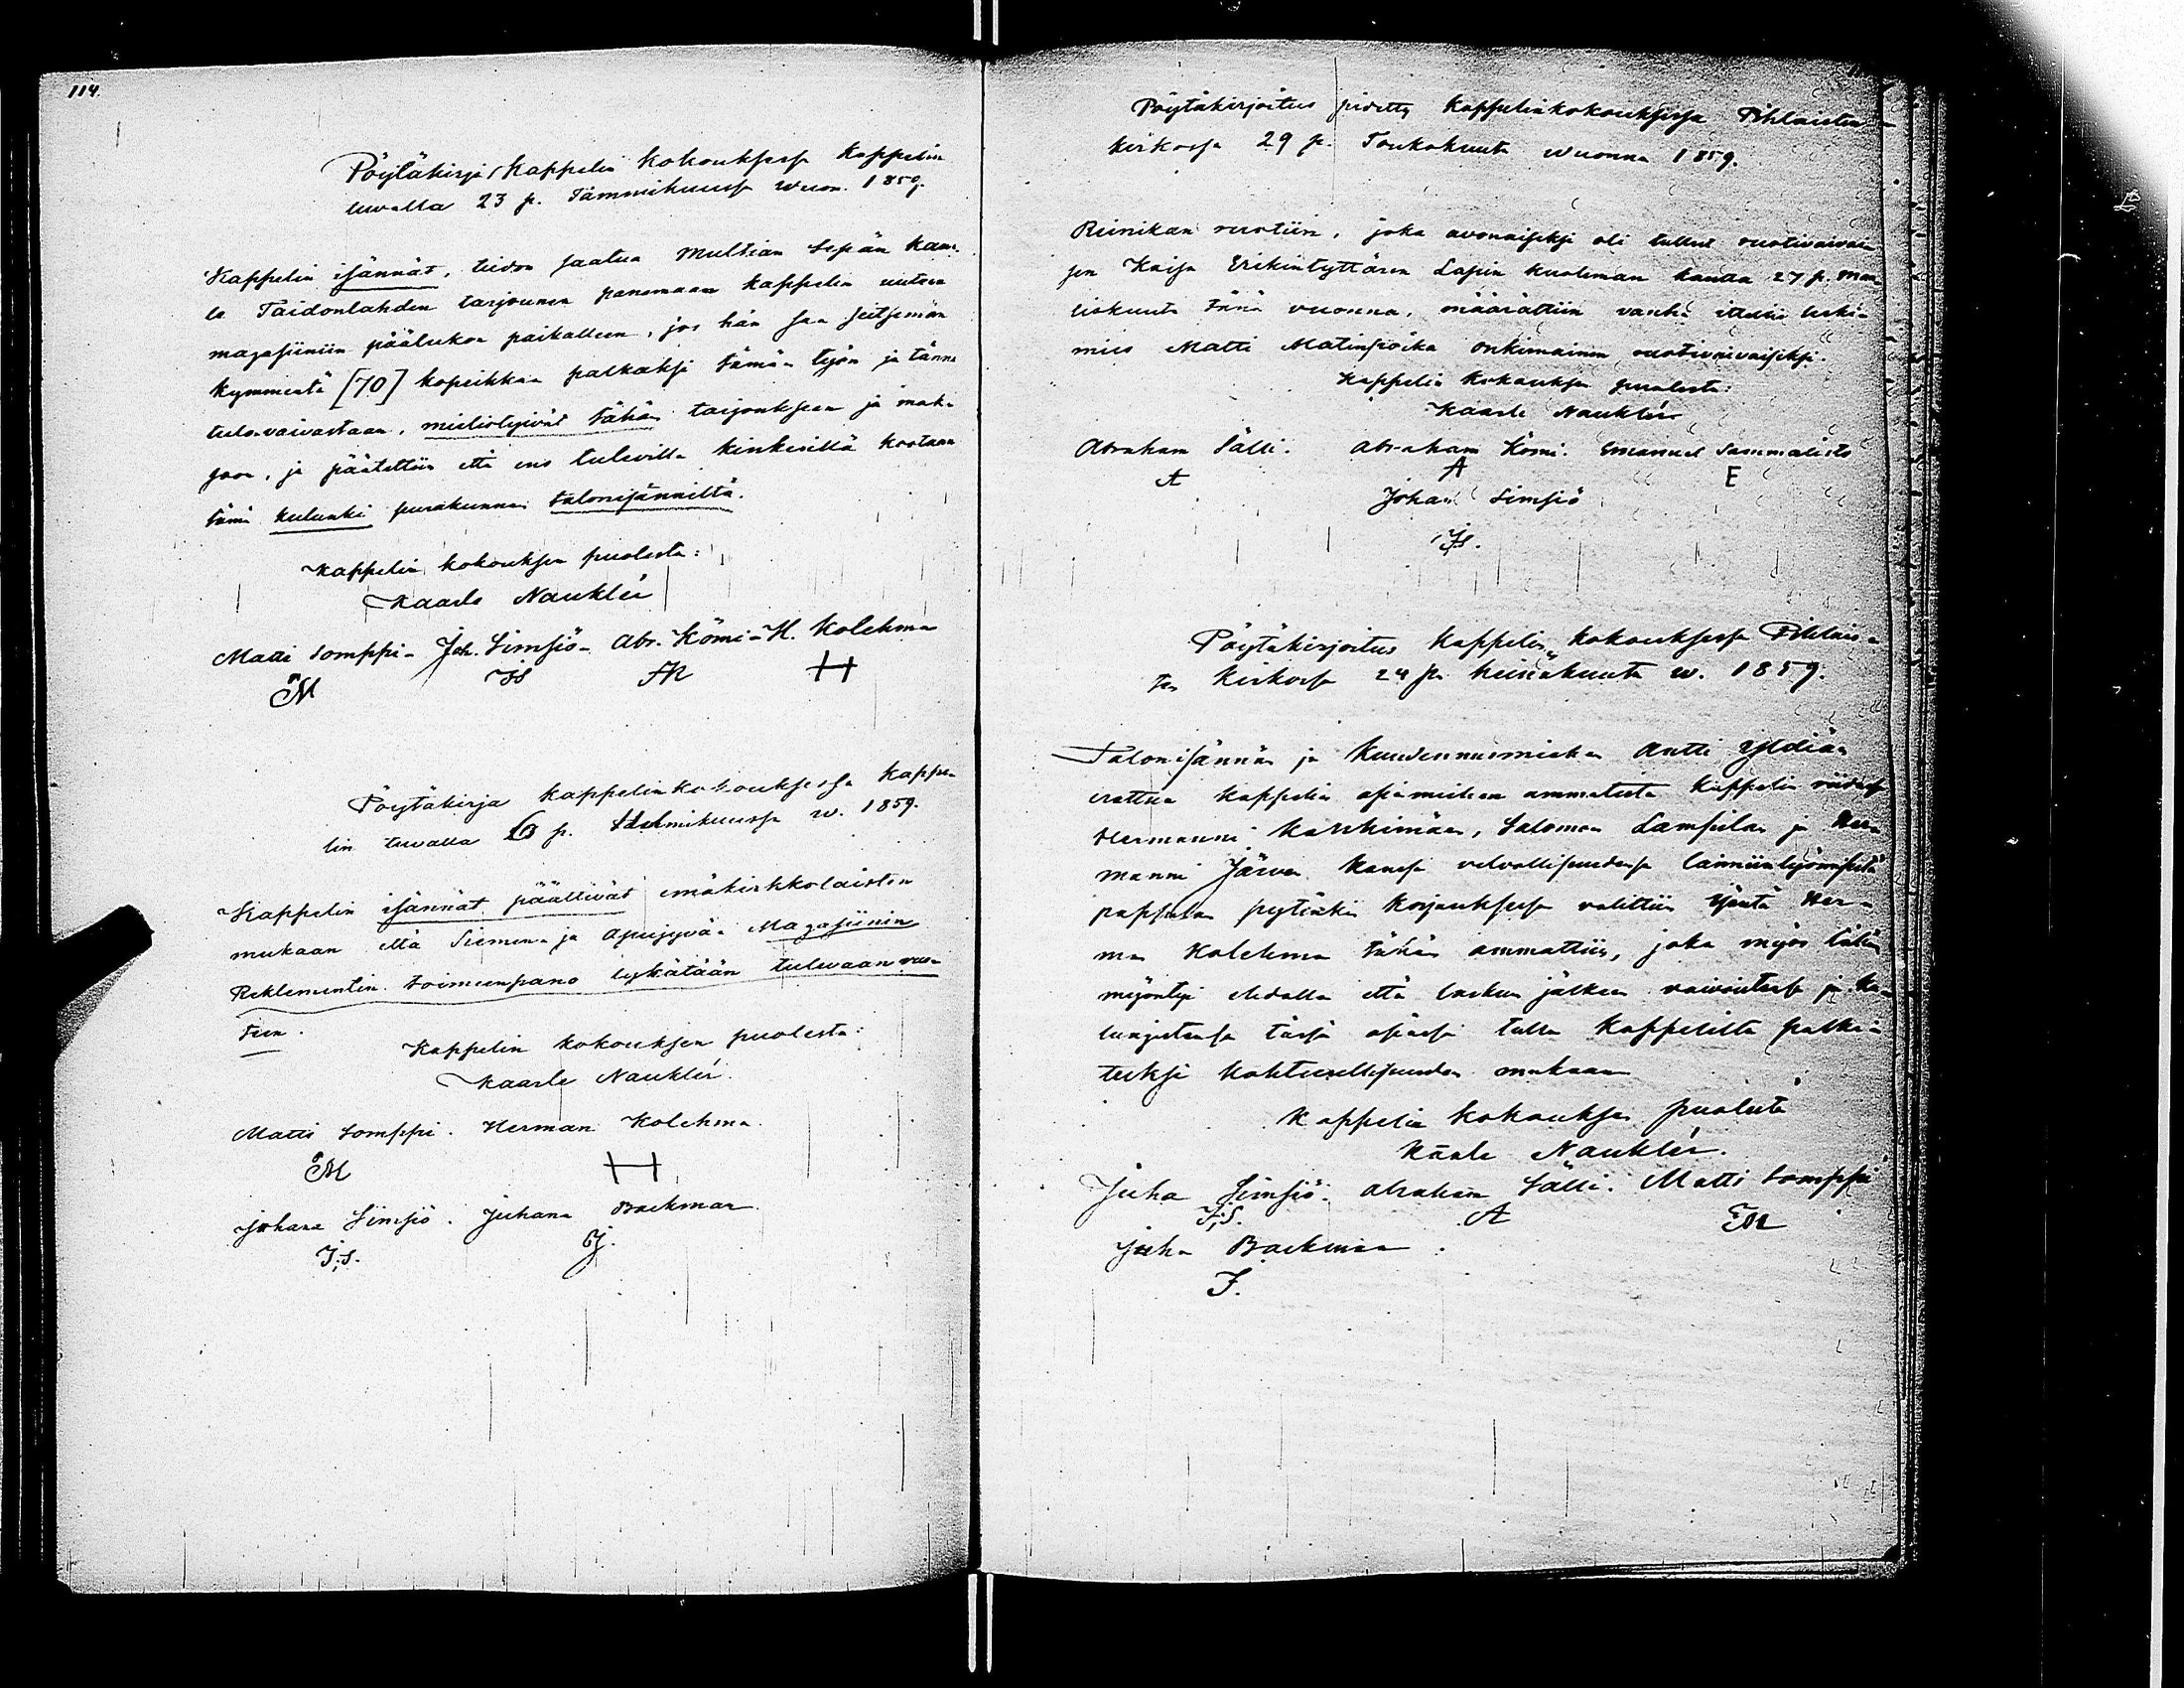 114.
Pöytäkirja Kappelin kokouksessa kappelin
tuvalla 23 p. Tämmikuussa wuon. 1859.
Kappelin isännät, tiedon saatua Multian sepän Kaar-
le Taidonlahden tarjounen panemaan kappelin uuteen
magasiiniin päälukon paikalleen, jos hän saa seitsemän
kymmentä [70] kopeikkaa palkaksi tämän työn ja tänne
tulo-vaivastaan, mielistyivät tähän tarjoukseen ja mak-
soon, ja päätettiin että ens tulevilla kinkerillä kootaan
tämä kulunki seurakunnan talonisänniltä.
Kappelin kokouksen puolesta:
Kaarle Nauklér
Matti Somppi - Joh. Simsiö - Abr. Kömi - H. Kolehma
M JS AK H
Pöytäkirja kappelinkokouksessa kappe-
lin tuvalla 6 p. Helmikuussa w. 1859.
Kappelin isännät päättivät emäkirkkolaisten
mukaan että Siemen- ja Apujyvän Magasiinin
Reklementin toimeenpano lykätään tulevaan vuo-
teen.
Kappelin kokouksen puolesta:
Kaarle Nauklér.
Matti Somppi. Herman Kolehma.
M H
Johana Simsiö. Juhana Backman.
J.S. J.
Pöytäkirjoitus pidetty Kappelinkokouksessa Pihlaisten
kirkossa 29 p. Toukokuuta wuonna 1859.
Reinikan ruotiin, joka avonaiseksi oli tullut ruotivaivai-
sen Kaisa Erikintyttären Lapin kuoleman kautta 27 p. maa-
liskuuta tänä vuonna, määrättiin vanha leski-
mies Matti Matinpoika Onkimainen ruotivaivaiseksi.
Kappelin kokouksen puolesta:
Kaarle Nauklér
Abraham Sälli. Abraham Kömi. Emanuel Sammalisto
A A E
Johan Simsiö
JS.
Pöytäkirjoitus Kappelin kokouksessa Pihlais-
ten Kirkossa 24 p. heinäkuuta w. 1859.
Talonisännän ja Kuudennusmiehen Antti
erottua kappelin asiamiehen ammatista kappelin riidassa
Hermanni Karhimäen, Salomon Lampilan ja Her-
manni Järven kanssa
pappilan korjauksessa valittiin isäntä Her-
man Kolehma tähän ammattiin, joka myös tähän
myöntyi ehdolla että laskun jälkeen vaivoistansa ja ku-
lungistansa tässä asiassa tulla kappelilta palki-
tuksi kohtuullisuuden mukaan
Kappelin kokouksen puolesta
Kaarle Nauklér.
Juha Simsiö. Abraham Sälli. Matti Somppi
J.S. A M
Juha Backman.
J.